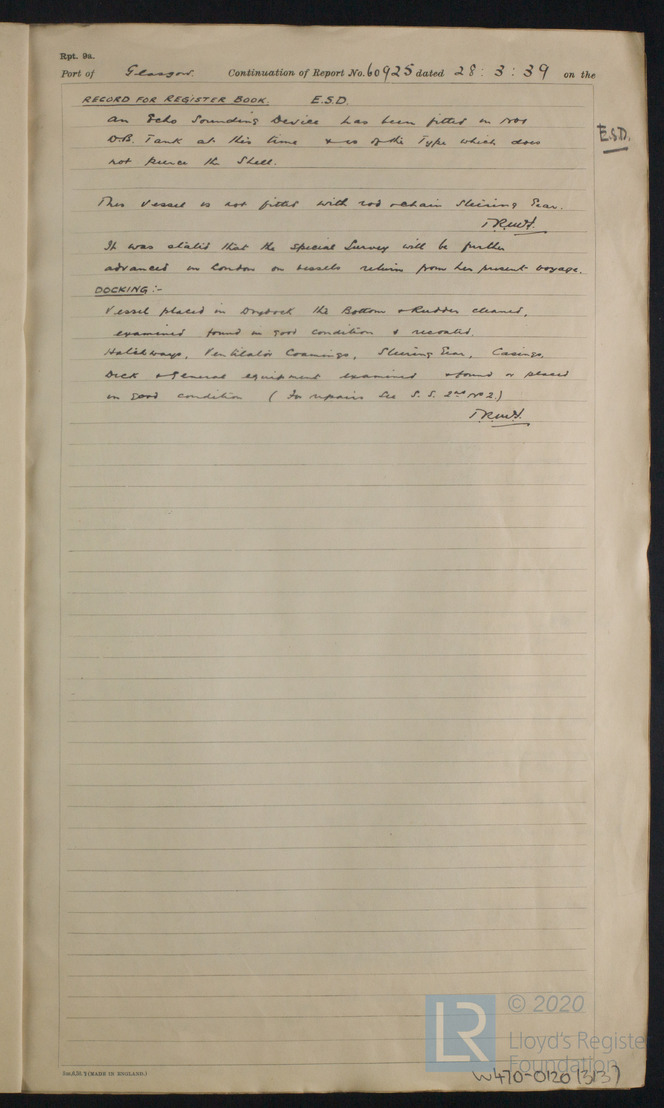 Rpt. 9a.
Port of Glasgow. Continuation of Report No. 60925 dated 28 : 3 : 39 on the
RECORD FOR REGISTER BOOK. E.S.D.
An Echo Sounding Device has been fitted in No1
D.B. Tank at this time & is of the Type which does
not pierce the Shell.
E.S.D.
This Vessel is not fitted with rod & chain Steering Gear.
It was stated that the Special Survey will be further
advanced in London on vessels return from her present voyage.
DOCKING :-
Vessel placed in Drydock the Bottom & Rudder cleaned,
examined found in good condition & recoated.
Hatchways, Ventilator Coamings, Steering Gear, Casings,
Deck & General equipment examined & found or placed
in good condition (For repairs See S.S. 2nd No 2.)
(MADE IN ENGLAND.)
LR
© 2020
Lloyd's Register
Foundation
W470-0120 (3/3)